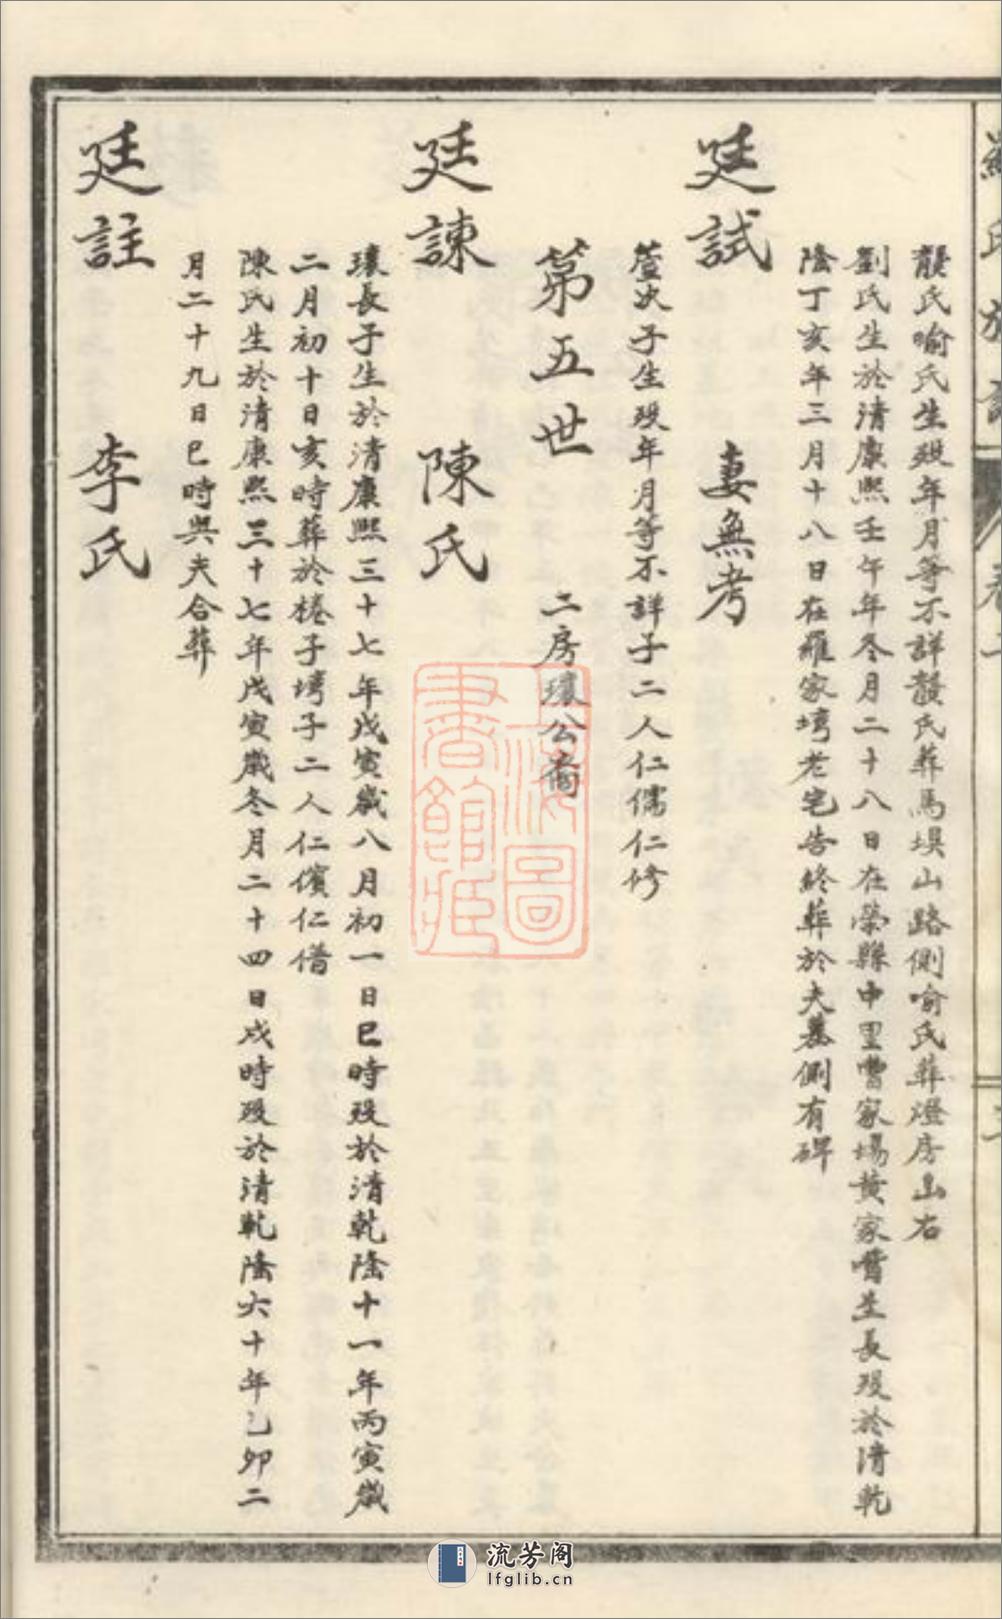 龔氏喻氏生歿年月等不詳龔氏葬馬垻山路側喻氏葬燈房山右
劉氏生於清康熙壬午年冬月二十八日在榮縣中里曹家場黄家嘴生長歿於清乾
隆丁亥年三月十八日在羅家塆老宅告終葬於夫墓側有碑
廷試 妻無考
萱次子生歿年月等不詳子二人仁儒仁修
第五世 二房瓌公裔
廷諫 陳氏
瓌長子生於清康熙三十七年戊寅歲八月初一日巳時歿於清乾隆十一年丙寅歲
二月初十日亥時葬於棬子塆子二人仁儐仁借
陳氏生於清康熙三十七年戊寅歲冬月二十四日戌時歿於清乾隆六十年乙卯二
月二十九日巳時與夫合葬
廷註 李氏
上海圖書館藏
流芳阁
lfglib.cn